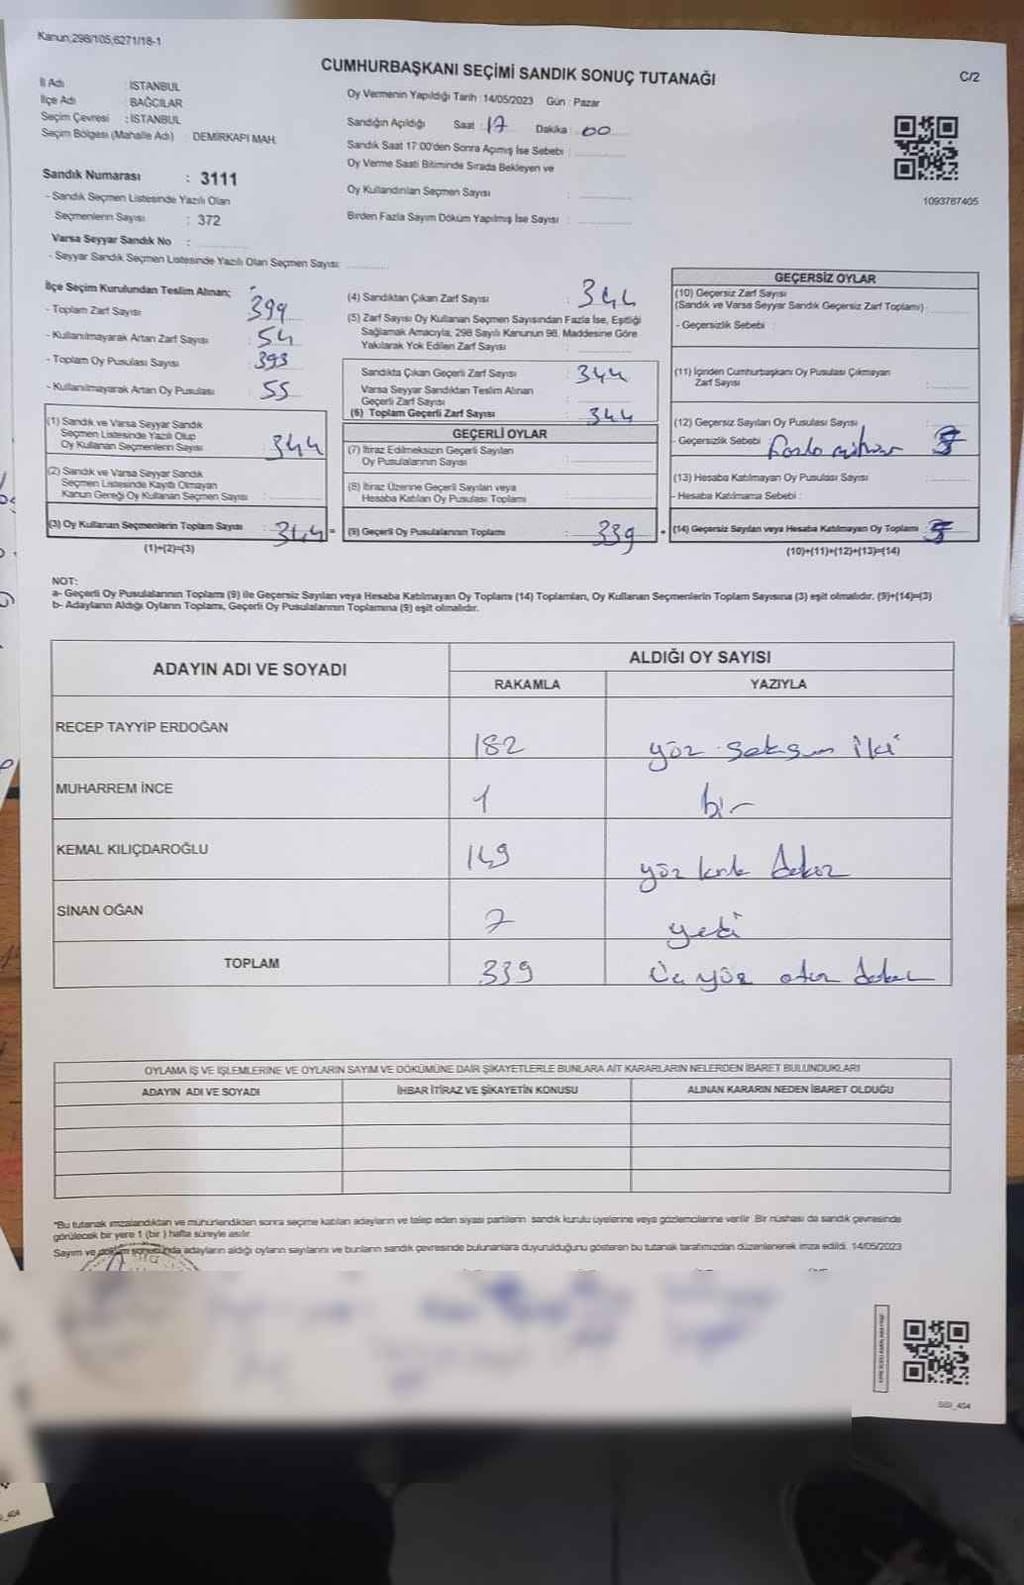 Kanun;298/105;6271/18-1
CUMHURBAŞKANI SEÇİMİ SANDIK SONUÇ TUTANAĞI
C/2
İl Adı : İSTANBUL
İlçe Adı : BAĞCILAR
Seçim Çevresi : İSTANBUL
Seçim Bölgesi (Mahalle Adı) : DEMİRKAPI MAH.
Sandık Numarası : 3111
- Sandık Seçmen Listesinde Yazılı Olan
Seçmenlerin Sayısı : 372
Varsa Seyyar Sandık No :
- Seyyar Sandık Seçmen Listesinde Yazılı Olan Seçmen Sayısı:
Oy Vermenin Yapıldığı Tarih : 14/05/2023 Gün : Pazar
Sandığın Açıldığı Saat : 17 Dakika : 00
Sandık Saat 17:00'den Sonra Açımış İse Sebebi :
Oy Verme Saati Bitiminde Sırada Bekleyen ve
Oy Kullandırılan Seçmen Sayısı :
Birden Fazla Sayım Döküm Yapılmış İse Sayısı :
1093767405
İlçe Seçim Kurulundan Teslim Alınan;
- Toplam Zarf Sayısı : 399
- Kullanılmayarak Artan Zarf Sayısı : 54
- Toplam Oy Pusulası Sayısı : 393
- Kullanılmayarak Artan Oy Pusulası : 55
(1) Sandık ve Varsa Seyyar Sandık
Seçmen Listesinde Yazılı Olup
Oy Kullanan Seçmenlerin Sayısı : 344
(2) Sandık ve Varsa Seyyar Sandık
Seçmen Listesinde Kayıtlı Olmayan
Kanun Gereği Oy Kullanan Seçmen Sayısı :
(3) Oy Kullanan Seçmenlerin Toplam Sayısı : 344 =
(1)+(2)=(3)
(4) Sandıktan Çıkan Zarf Sayısı : 344
(5) Zarf Sayısı Oy Kullanan Seçmen Sayısından Fazla İse, Eşitliği
Sağlamak Amacıyla, 298 Sayılı Kanunun 98. Maddesine Göre
Yakılarak Yok Edilen Zarf Sayısı :
Sandıkta Çıkan Geçerli Zarf Sayısı : 344
Varsa Seyyar Sandıktan Teslim Alınan
Geçerli Zarf Sayısı :
(6) Toplam Geçerli Zarf Sayısı : 344
GEÇERLİ OYLAR
(7) İtiraz Edilmeksizin Geçerli Sayılan
Oy Pusulalarının Sayısı :
(8) İtiraz Üzerine Geçerli Sayılan veya
Hesaba Katılan Oy Pusulası Toplamı :
(9) Geçerli Oy Pusulalarının Toplamı : 339 +
GEÇERSİZ OYLAR
(10) Geçersiz Zarf Sayısı
(Sandık ve Varsa Seyyar Sandık Geçersiz Zarf Toplamı) :
- Geçersizlik Sebebi :
(11) İçinden Cumhurbaşkanı Oy Pusulası Çıkmayan
Zarf Sayısı :
(12) Geçersiz Sayılan Oy Pusulası Sayısı : 5
- Geçersizlik Sebebi :
(13) Hesaba Katılmayan Oy Pusulası Sayısı :
- Hesaba Katılmama Sebebi :
(14) Geçersiz Sayılan veya Hesaba Katılmayan Oy Toplamı : 5
(10)+(11)+(12)+(13)=(14)
NOT:
a- Geçerli Oy Pusulalarının Toplamı (9) ile Geçersiz Sayılan veya Hesaba Katılmayan Oy Toplamı (14) Toplamları, Oy Kullanan Seçmenlerin Toplam Sayısına (3) eşit olmalıdır. (9)+(14)=(3)
b- Adayların Aldığı Oyların Toplamı, Geçerli Oy Pusulalarının Toplamına (9) eşit olmalıdır.
ADAYIN ADI VE SOYADI ALDIĞI OY SAYISI
RAKAMLA YAZIYLA
RECEP TAYYİP ERDOĞAN 182 yüz seksen iki
MUHARREM İNCE 1 bir
KEMAL KILIÇDAROĞLU 149 yüz kırk dokuz
SİNAN OĞAN 7 yedi
TOPLAM 339 Üç yüz otuz dokuz
OYLAMA İŞ VE İŞLEMLERİNE VE OYLARIN SAYIM VE DÖKÜMÜNE DAİR ŞİKAYETLERLE BUNLARA AİT KARARLARIN NELERDEN İBARET BULUNDUKLARI
ADAYIN ADI VE SOYADI İHBAR İTİRAZ VE ŞİKAYETİN KONUSU ALINAN KARARIN NEDEN İBARET OLDUĞU
*Bu tutanak imzalandıktan ve mühürlendikten sonra seçime katılan adayların ve talep eden siyasi partilerin sandık kurulu üyelerine veya gözlemcilerine verilir. Bir nüshası da sandık çevresinde
görülecek bir yere 1 (bir) hafta süreyle asılır.
Sayım ve döküm sonucunda adayların aldığı oyların sayılarını ve bunların sandık çevresinde bulunanlara duyurulduğunu gösteren bu tutanak tarafımızdan düzenlenerek imza edildi. 14/05/2023